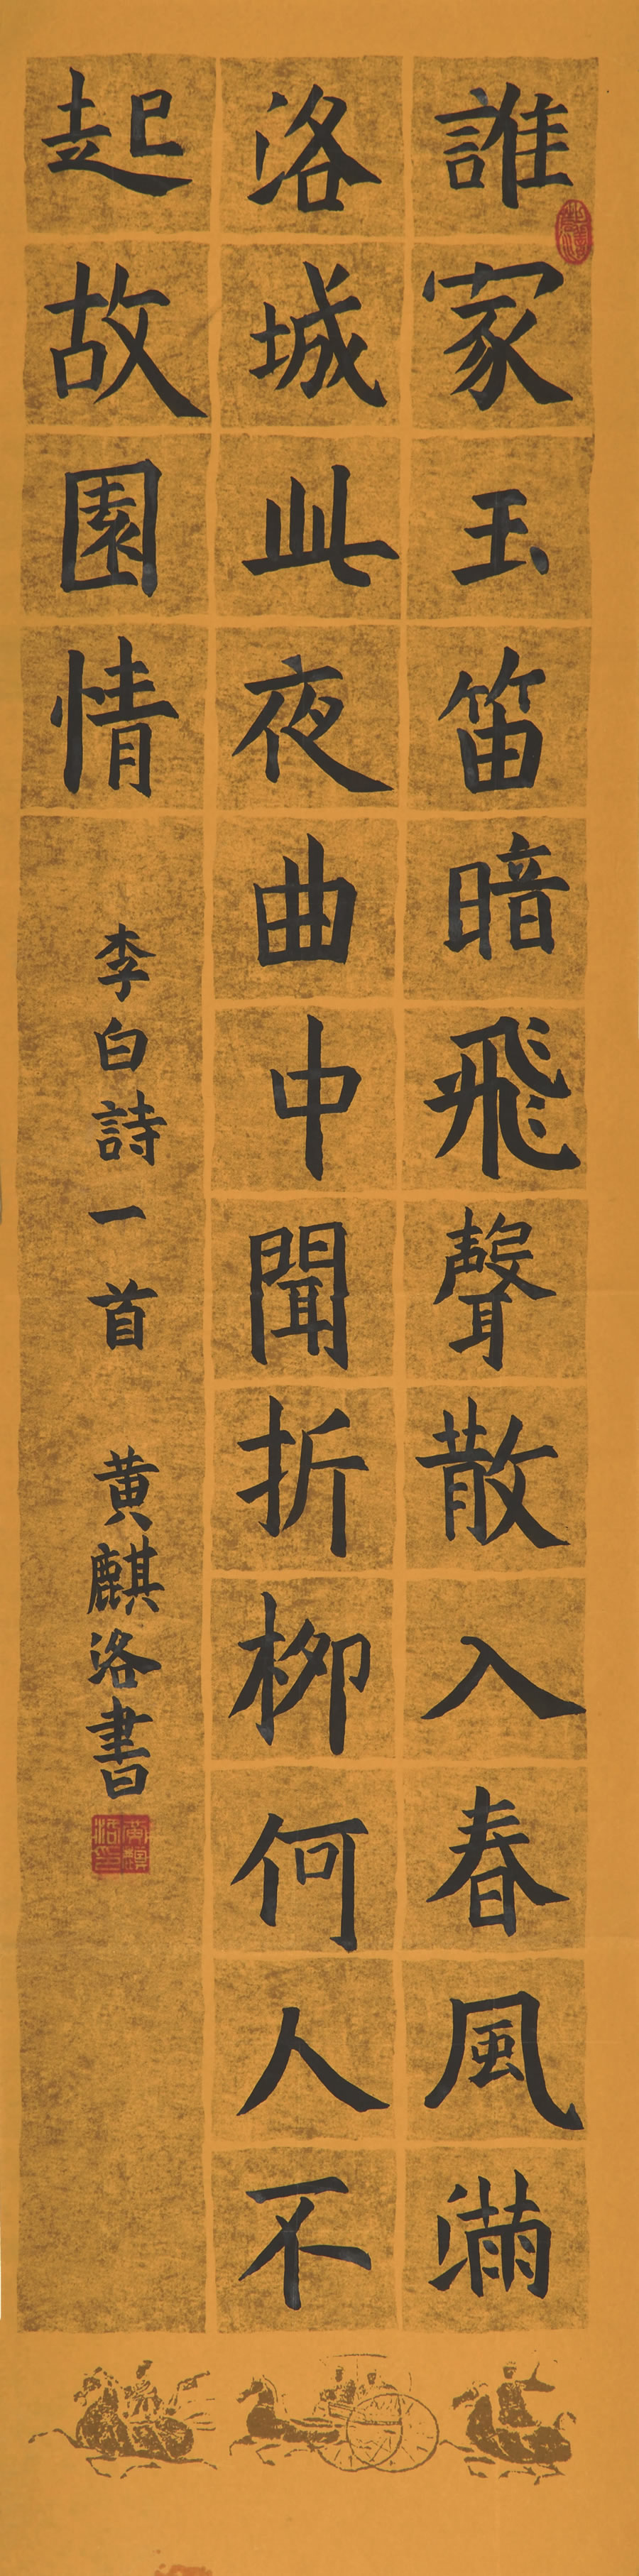 誰家玉笛暗飛聲散入春風滿
洛城此夜曲中聞折柳何人不
起故園情
李白詩一首 黄麒洛書